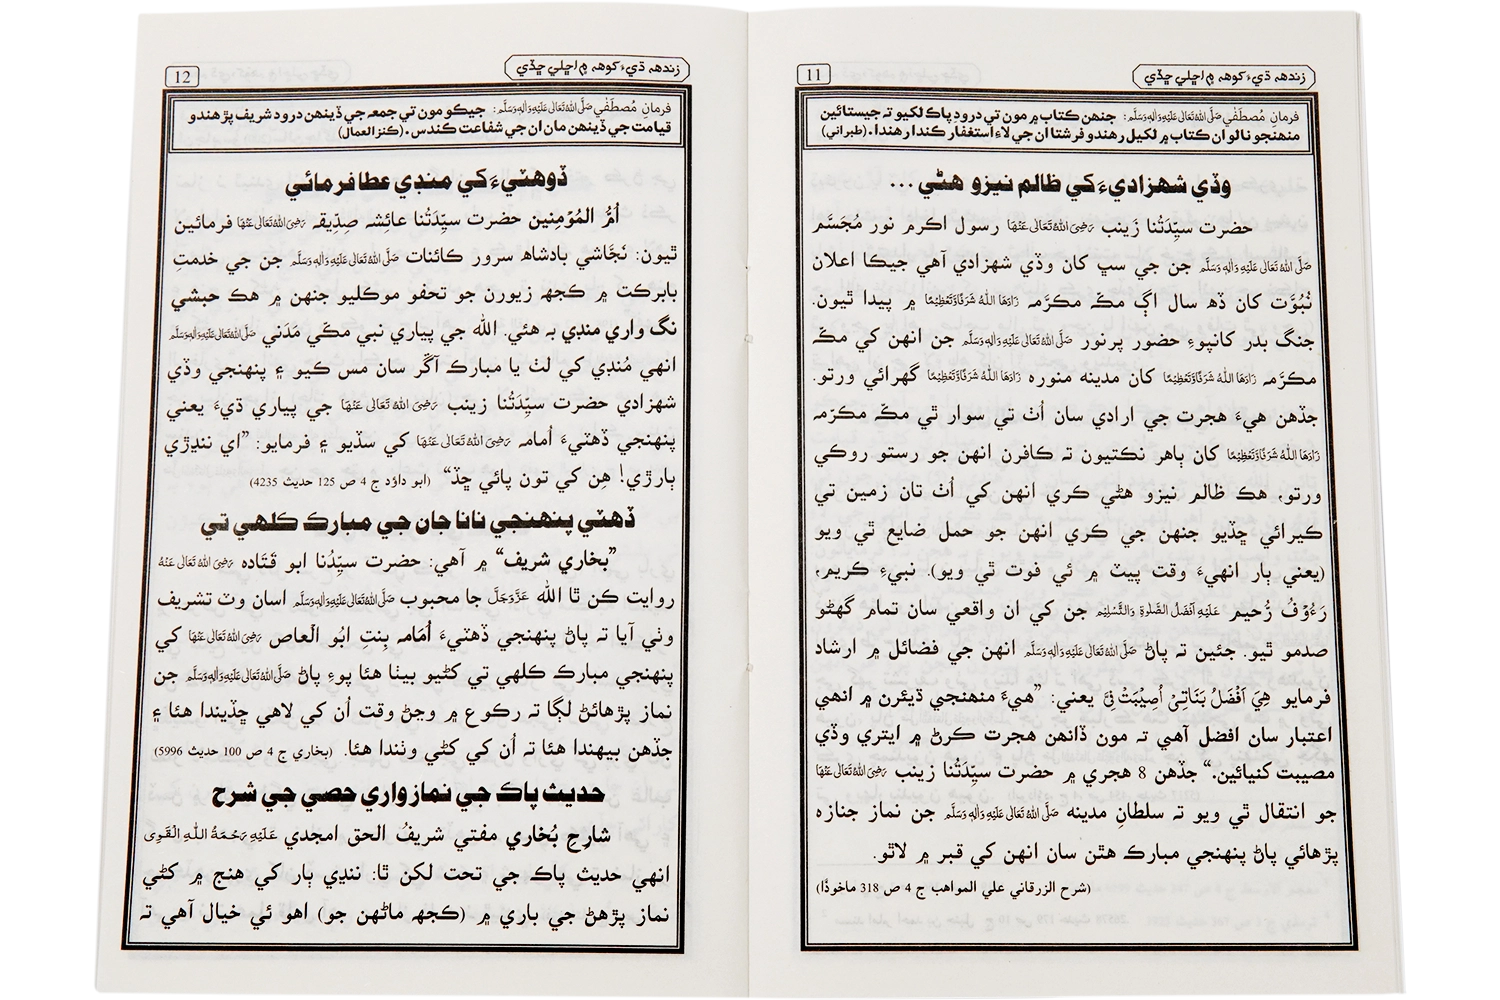 11
زندهہ ڌيءَ کوهہ ۾ اڇلي ڇڏي
فرمانِ مُصطَفٰي صَلَّی اللہُ تَعَالٰی عَلَیْہِ وَاٰلِہٖ وَسَلَّم: جنهن ڪتاب ۾ مون تي درودِ پاڪ لکيو تہ جيستائين
منهنجو نالو ان ڪتاب ۾ لکيل رهندو فرشتا ان جي لاءِ استغفار ڪندا رهندا. (طبراني)
وڏي شهزاديءَ کي ظالم نيزو هڻي ...
حضرت سيِّدَتُنا زينب رَضِیَ اللہُ تَعَالٰی عَنْہَا رسول اڪرم نور مُجَسَّم
صَلَّی اللہُ تَعَالٰی عَلَیْہِ وَاٰلِہٖ وَسَلَّم جن جي سڀ کان وڏي شهزادي آهي جيڪا اعلان
نُبُوَّت کان ڏهہ سال اڳ مڪّہ مڪرَّمہ زَادَھَا اللہُ شَرَفًاوَّتَعْظِیْمًا ۾ پيدا ٿيون.
جنگ بدر کانپوءِ حضور پرنور صَلَّی اللہُ تَعَالٰی عَلَیْہِ وَاٰلِہٖ وَسَلَّم جن انهن کي مڪّہ
مڪرَّمہ زَادَھَا اللہُ شَرَفًاوَّتَعْظِیْمًا کان مدينہ منوره زَادَھَا اللہُ شَرَفًاوَّتَعْظِیْمًا گهرائي ورتو.
جڏهن هيءَ هجرت جي ارادي سان اُٺ تي سوار ٿي مڪّہ مڪرّمہ
زَادَھَا اللہُ شَرَفًاوَّتَعْظِیْمًا کان ٻاهر نڪتيون تہ ڪافرن انهن جو رستو روڪي
ورتو، هڪ ظالم نيزو هڻي ڪري انهن کي اُٺ تان زمين تي
ڪيرائي ڇڏيو جنهن جي ڪري انهن جو حمل ضايع ٿي ويو
(يعني ٻار انهيءَ وقت پيٽ ۾ ئي فوت ٿي ويو). نبيءِ ڪريم،
رَءُوْفٌ رَّحيم عَلَیْہِ اَفْضَلُ الصَّلٰوۃِ وَالتَّسْلِیْم جن کي ان واقعي سان تمام گهڻو
صدمو ٿيو. جئين تہ پاڻ صَلَّی اللہُ تَعَالٰی عَلَیْہِ وَاٰلِہٖ وَسَلَّم انهن جي فضائل ۾ ارشاد
فرمايو هِيَ اَفْضَلُ بَنَاتِيْ اُصِيْبَتْ فِيَّ يعني: ”هيءَ منهنجي ڌيئرن ۾ انهي
اعتبار سان افضل آهي تہ مون ڏانهن هجرت ڪرڻ ۾ ايتري وڏي
مصيبت کنيائين.“ جڏهن 8 هجري ۾ حضرت سيِّدَتُنا زينب رَضِیَ اللہُ تَعَالٰی عَنْہَا
جو انتقال ٿي ويو تہ سلطانِ مدينہ صَلَّی اللہُ تَعَالٰی عَلَیْہِ وَاٰلِہٖ وَسَلَّم جن نماز جنازه
پڙهائي پاڻ پنهنجي مبارڪ هٿن سان انهن کي قبر ۾ لاٿو.
(شرح الزرقاني علي المواهب ج 4 ص 318 ماخوذًا)
12
زندهہ ڌيءَ کوهہ ۾ اڇلي ڇڏي
فرمانِ مُصطَفٰي صَلَّی اللہُ تَعَالٰی عَلَیْہِ وَاٰلِہٖ وَسَلَّم: جيڪو مون تي جمعہ جي ڏينهن درود شريف پڙهندو
قيامت جي ڏينهن مان ان جي شفاعت ڪندس. (ڪنزالعمال)
ڏوهٽيءَ کي منڊي عطا فرمائي
اُمُّ المُؤمِنِين حضرت سيِّدَتُنا عائِشہ صِدِّيقہ رَضِیَ اللہُ تَعَالٰی عَنْہَا فرمائين
ٿيون: نَجَّاشي بادشاهہ سرور ڪائنات صَلَّی اللہُ تَعَالٰی عَلَیْہِ وَاٰلِہٖ وَسَلَّم جن جي خدمتِ
بابرڪت ۾ ڪجهہ زيورن جو تحفو موڪليو جنهن ۾ هڪ حبشي
نگ واري منڊي بہ هئي. اللہ جي پياري نبي مڪّي مَدَني صَلَّی اللہُ تَعَالٰی عَلَیْہِ وَاٰلِہٖ وَسَلَّم
انهي مُنڊي کي لٺ يا مبارڪ آڱر سان مس ڪيو ۽ پنهنجي وڏي
شهزادي حضرت سيِّدَتُنا زينب رَضِیَ اللہُ تَعَالٰی عَنْہَا جي پياري ڌيءَ يعني
پنهنجي ڏهٽيءَ اُمامہ رَضِیَ اللہُ تَعَالٰی عَنْہَا کي سڏيو ۽ فرمايو: ”اي ننڍڙي
ٻارڙي! هِن کي تون پائي ڇڏ“ (ابو داؤد ج 4 ص 125 حديث 4235)
ڏهٽي پنهنجي نانا جان جي مبارڪ ڪلهي تي
”بخاري شريف“ ۾ آهي: حضرت سيِّدُنا ابو قَتَاده رَضِیَ اللہُ تَعَالٰی عَنْہُ
روايت ڪن ٿا اللہ عَزَّوَجَلَّ جا محبوب صَلَّی اللہُ تَعَالٰی عَلَیْہِ وَاٰلِہٖ وَسَلَّم اسان وٽ تشريف
وٺي آيا تہ پاڻ پنهنجي ڏهٽيءَ اُمَامہ بِنتِ ابُو الْعاص رَضِیَ اللہُ تَعَالٰی عَنْہَا کي
پنهنجي مبارڪ ڪلهي تي کڻيو بيٺا هئا پوءِ پاڻ صَلَّی اللہُ تَعَالٰی عَلَیْہِ وَاٰلِہٖ وَسَلَّم جن
نماز پڙهائڻ لڳا تہ رڪوع ۾ وڃڻ وقت اُن کي لاهي ڇڏيندا هئا ۽
جڏهن بيهندا هئا تہ اُن کي کڻي وٺندا هئا. (بخاري ج 4 ص 100 حديث 5996)
حديث پاڪ جي نماز واري حصي جي شرح
شارِحِ بُخاري مفتي شريفُ الحق امجدي عَلَیْہِ رَحْمَۃُ اللہِ الْقَوِی
انهي حديث پاڪ جي تحت لکن ٿا: ننڍي ٻار کي هنج ۾ کڻي
نماز پڙهڻ جي باري ۾ (ڪجهہ ماڻهن جو) اهو ئي خيال آهي تہ